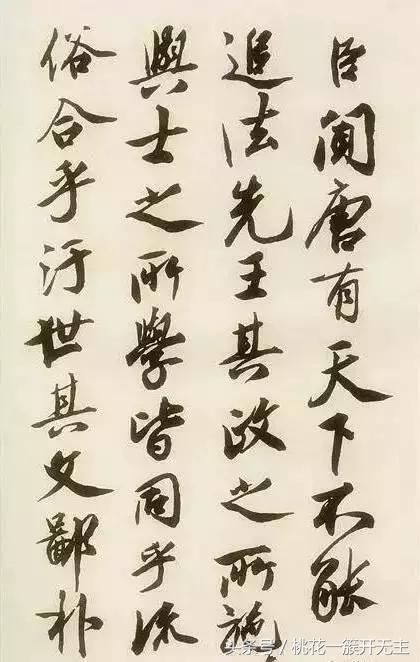 臣聞唐有天下不能
追法先王其政之所施
與士之所學皆同乎流
俗合乎汙世其文鄙朴
头条号／桃花一簇开无主